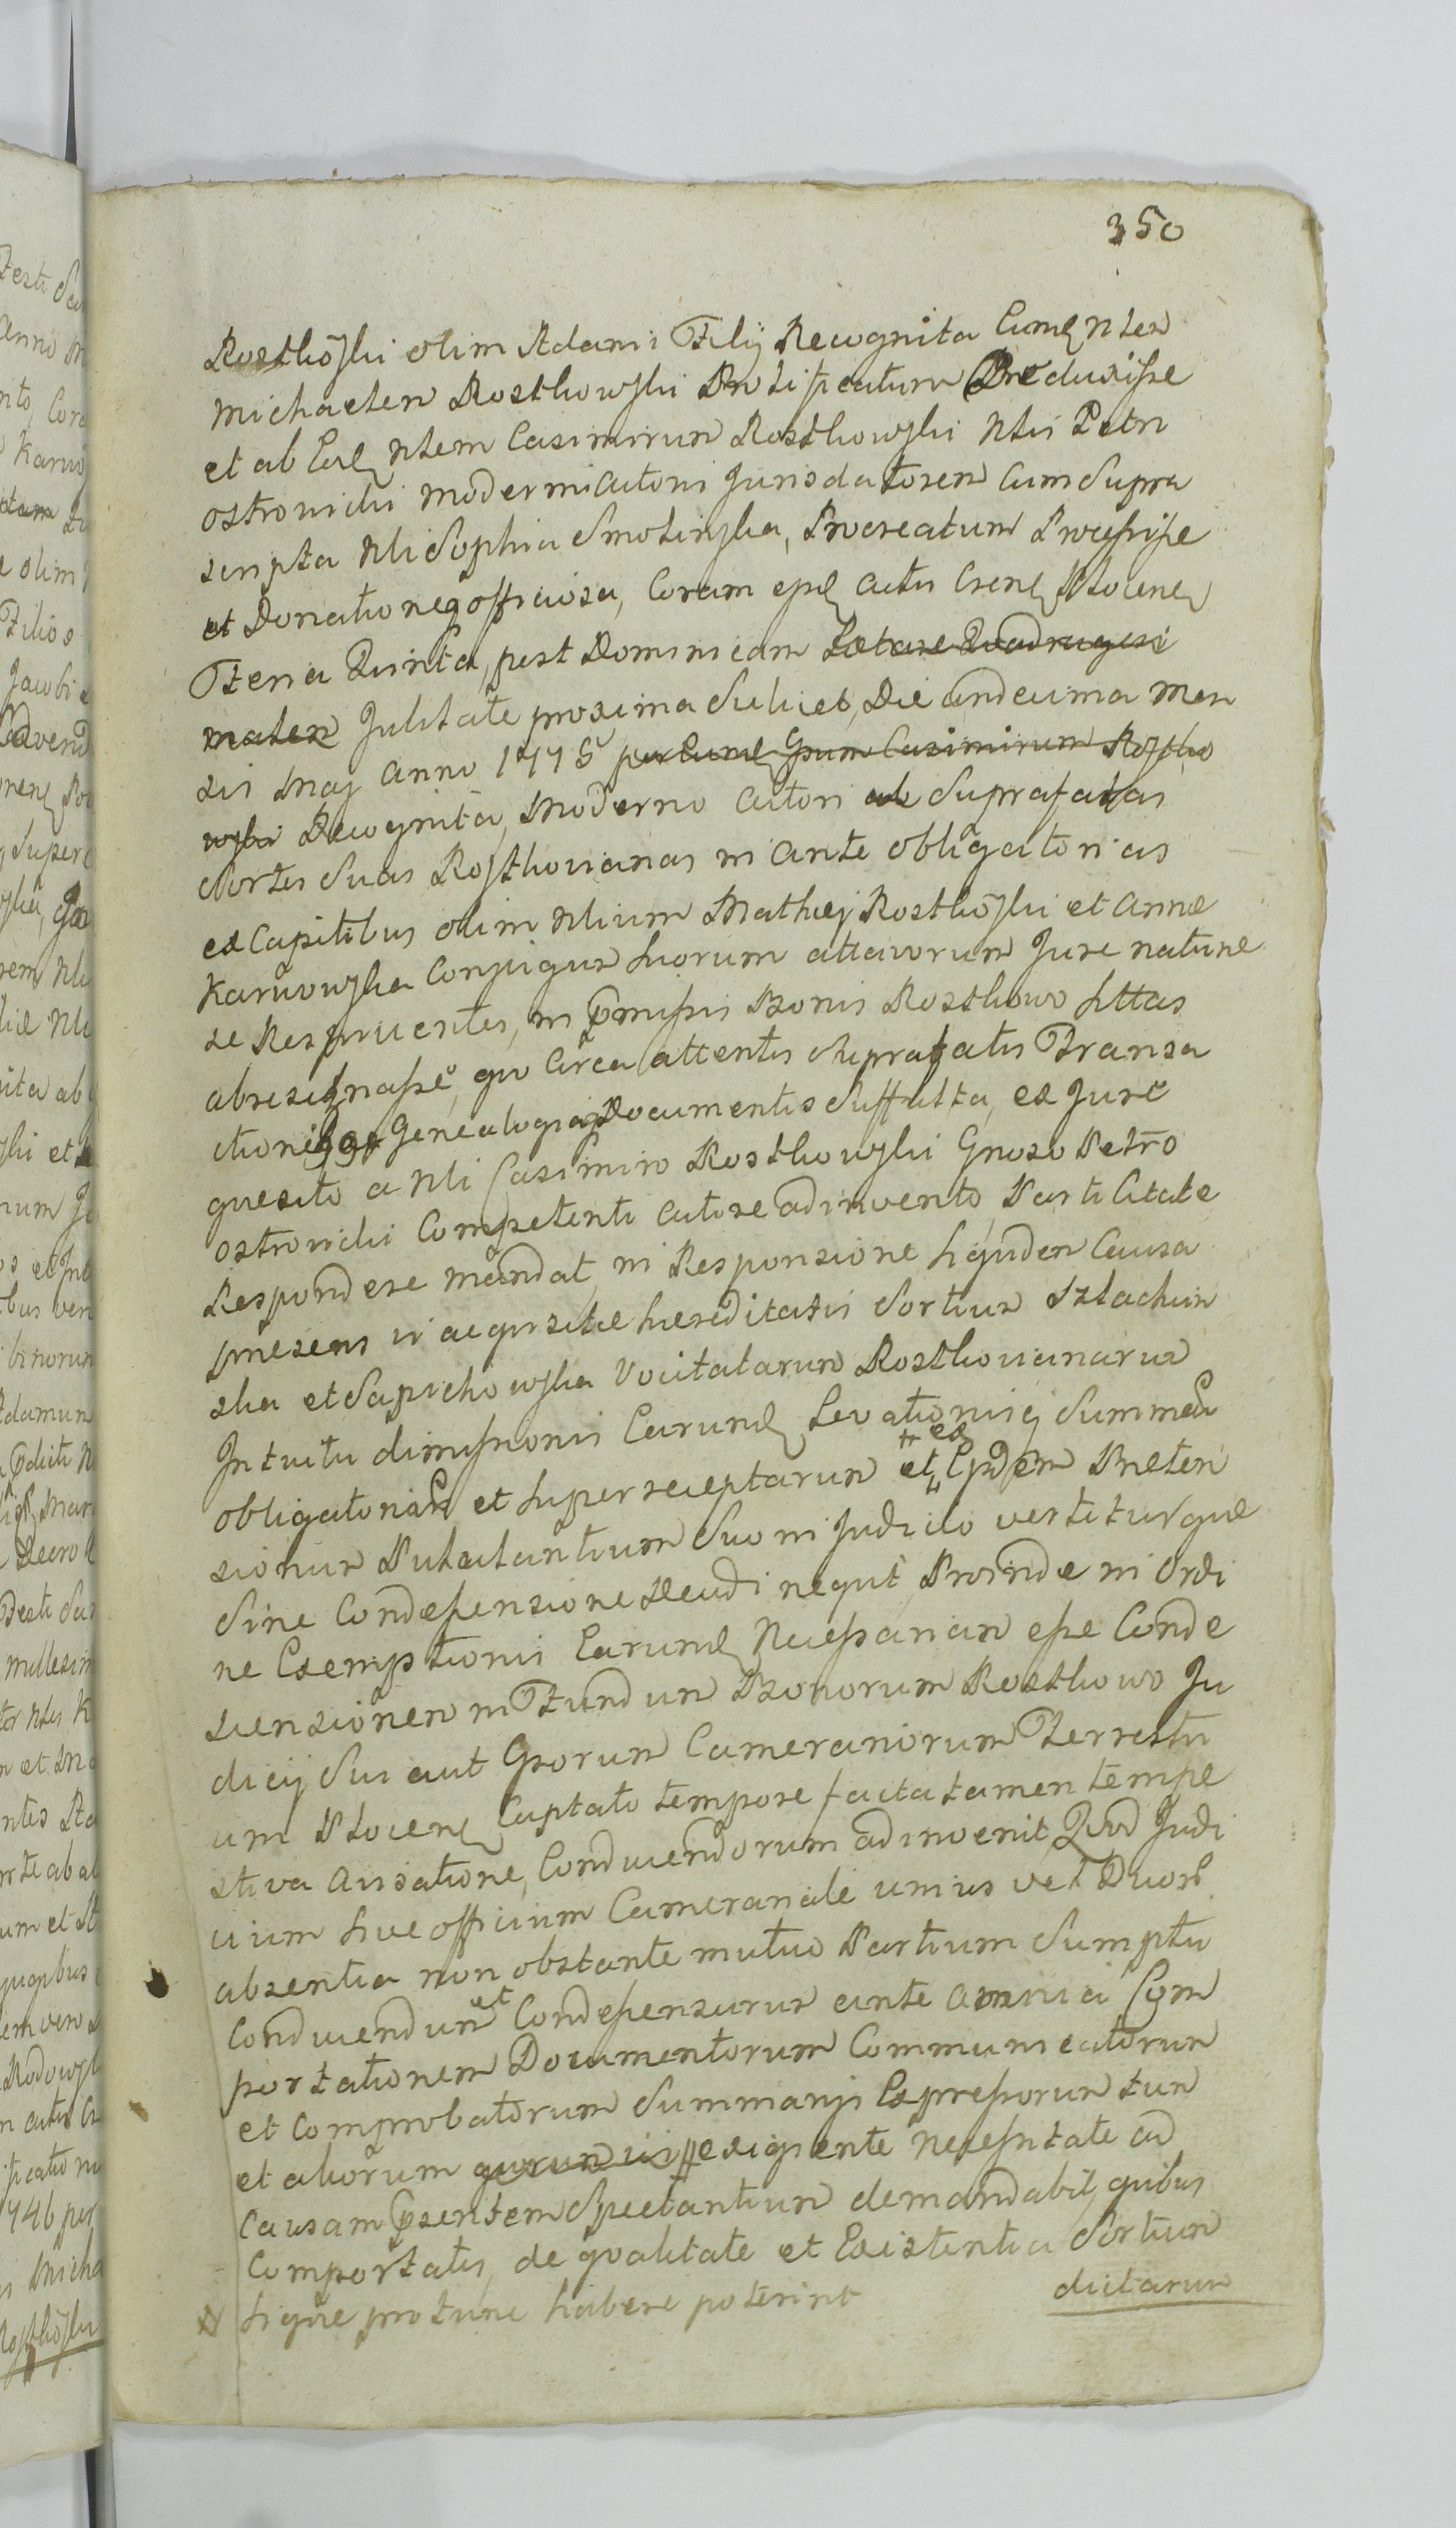 350
Rostkōwski olim Adami Filij Recognita Eumq Nlem
Michaelem Rostkowski Protificatum Produxisse
et ab Eodq Nlem Casimirum Rostkowski Nlis Petri
ostrowicki moderni Actoris Jurisdatorem cum Supra
scripta Nli Sophia Smolinska, Procreatum Processisse
et Donationeq officiosa, Coram ejsdq Actis Csenq Plocenq
Feria Quinta, post Dominicam Lætare Quadragesi
malem Jubilate proxima Scilicet, Die undecima Men
sis Maij Anno 1775 per Eumq Gsum Casimirum Rostko
wski Recognita, Moderno Actori ab Suprafatas
Sortes Suas Rostkovianas in ante obligatorias
ex Capitibus olim Nlium Mathiæ Rostkōwski et Annæ
Karwowska Conjugum suorum attavorum Jure naturæ
se Respicientes, in pmissis Bonis Rostkowo sittas
abresignasse, quo Circa attentis Suprafatis Transa
ctionibq Genealogiaq Documentis Suffulta, ex Jure
quesito a Nli Casimiro Rostkowski Gnoso Petro
ostrowicki Competenti Actore adinvento Parti Citatæ
Respondere mandat, in Responsione siquidem Causa
præsens vi acquisitæ hæreditatis Sortium Szlachcin
ska et Sapichowska Vocitatarum Rostkovianarum
Intuitu dimissionis Earumq Levationisq Summæ
obligatoriar et super receptarum et Ejusdem Præten
sionum Putatantium Suo in Judicio vertitur quæ
Sine Condescensione decidi nequit, Proinde in Ordi
ne Exemptionis Earumq Necessariam esse Conde
scensionem in Fundum Bonorum Rostkowo Ju
dicij Sui aut Gsorum Camerariorum Terrestri
um Plocenq Captato tempore facta tamen tempe
stiva Avisatione, Conducendorum adinvenit, Quod Judi
cium sive officium Camerariale unius vel Duor
absentia non obstante mutuo Partium Sumptu
Conducendum et Condescensurum ante omnia Com
portationem Documentorum Communicatorum
et Comprobatorum Summarijs Expressorum tum
et aliorum quorumvis exigente necessitate ad
Causam psentem Spectantium demandabit, quibus
Comportatis, de qualitate et Existentia Sortium
siquæ protunc habere poterint
dictarum